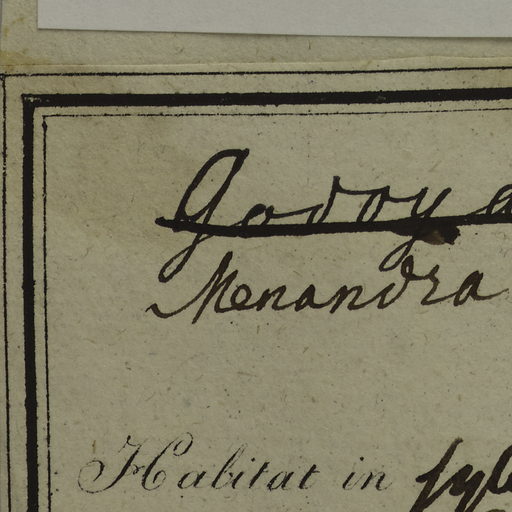 Godoya
Menandra
Habitat in